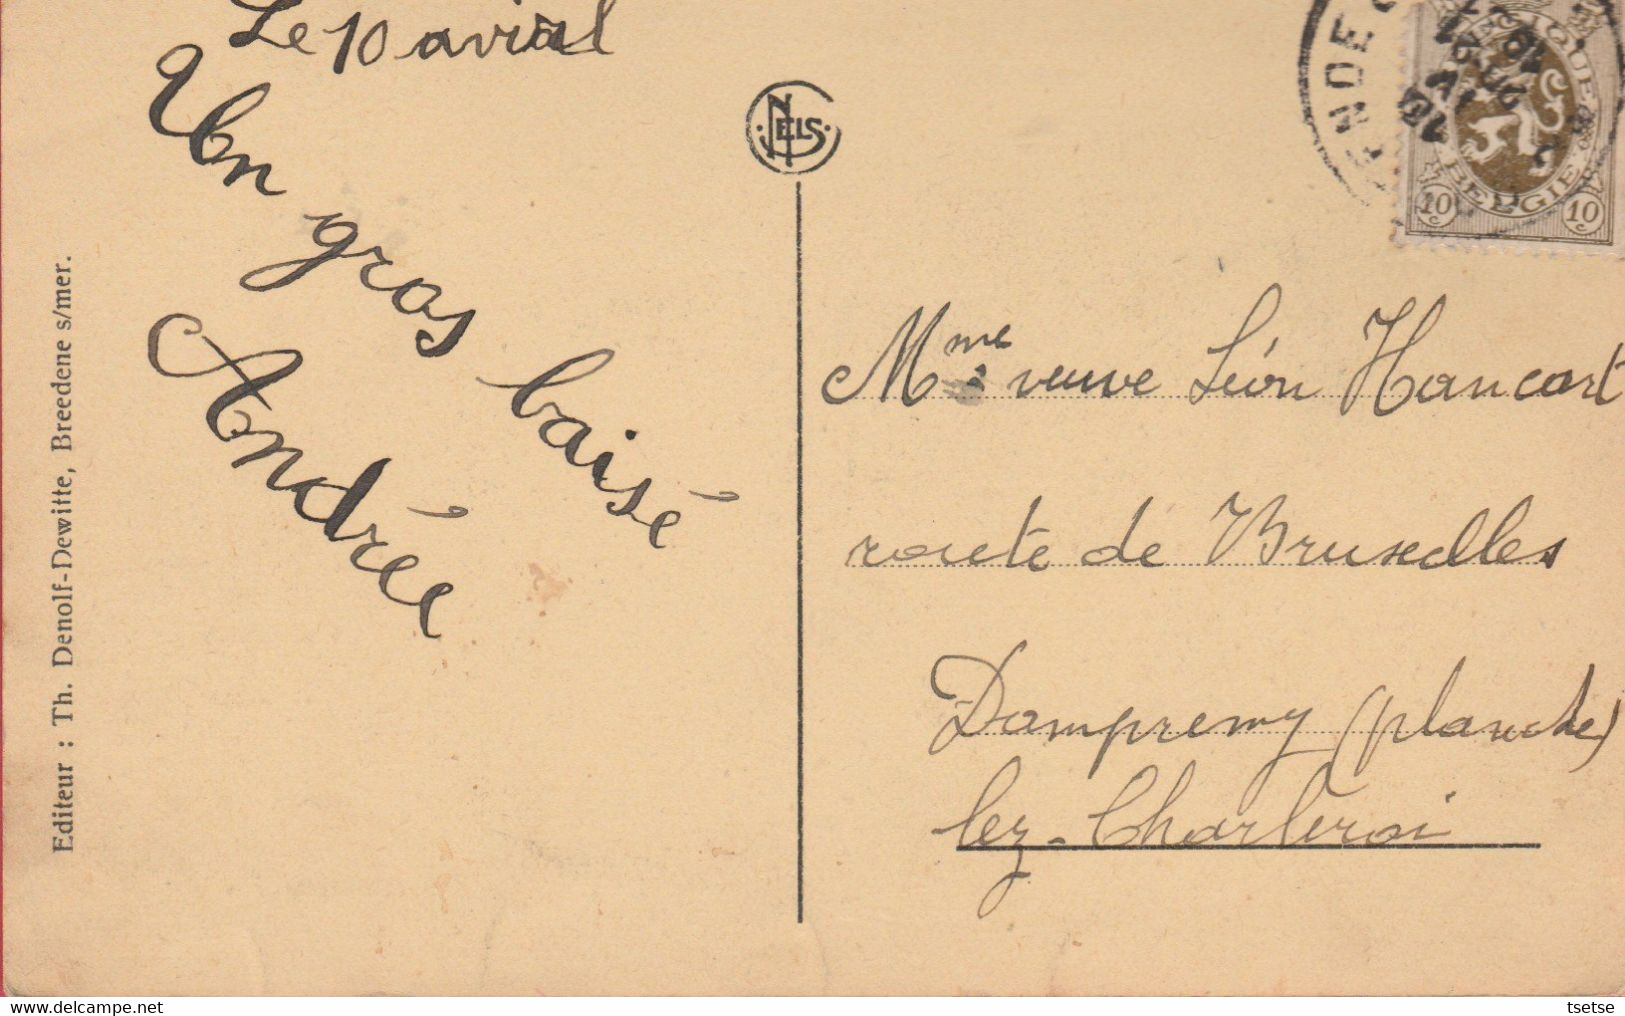 Le 10 avrial
Un
gros
baisé
Andrée
Editeur : Th. Denolf-Dewitte, Breedene s/mer.
NELS
BELGIQUE
BELGIE
10 c
10 c
Mme veuve Léon Hancart
route de Bruxelles
Dampremy (planche)
lez-Charleroi
tsetse